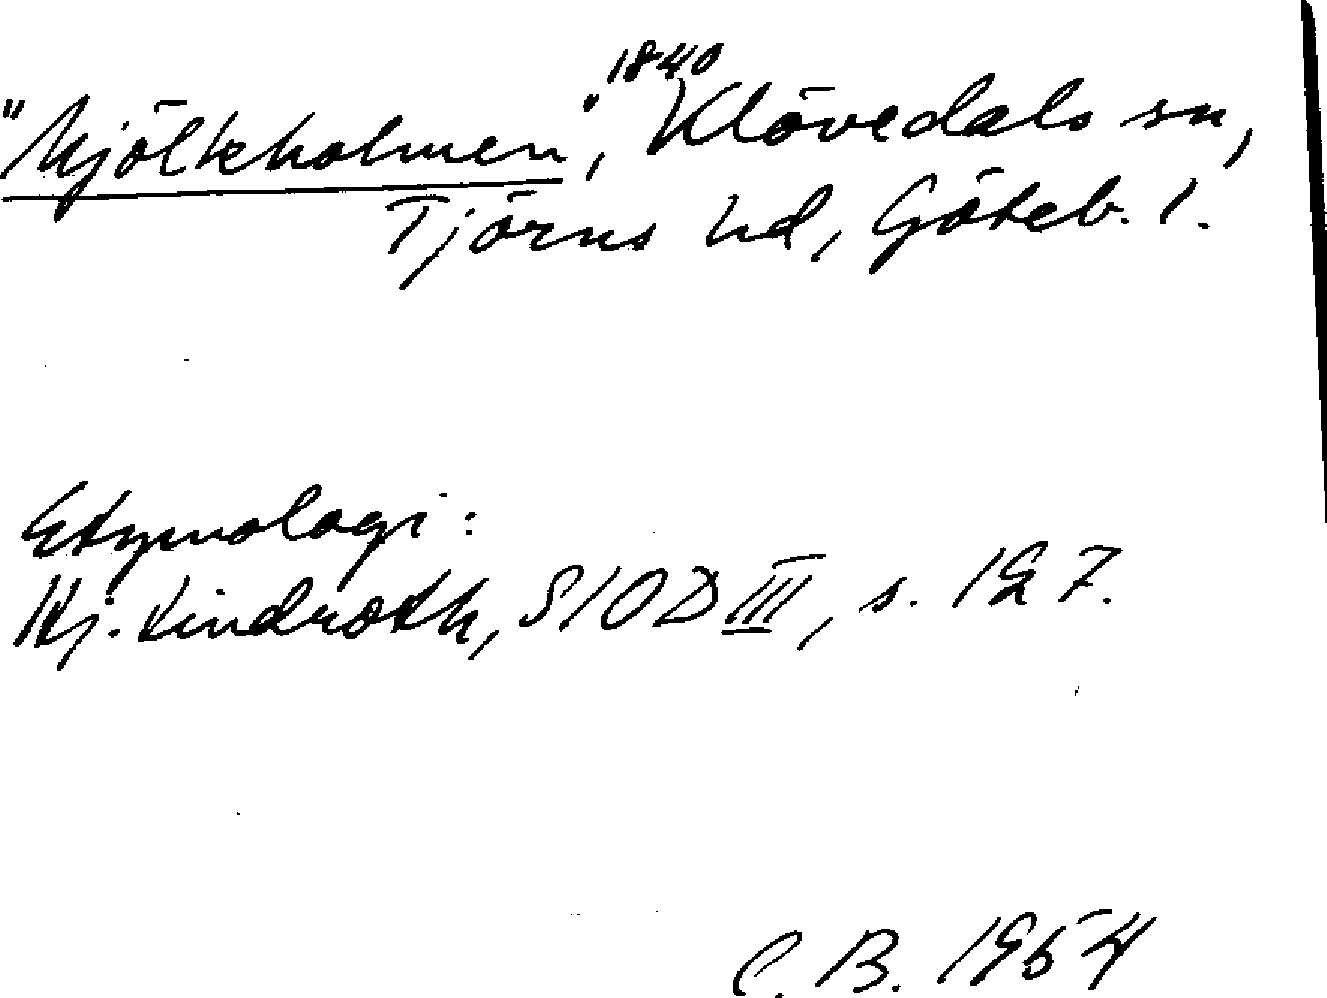 "Mjölkholmen", 1840 Klövedals sn,
Tjörns hd, Göteb. l.
Etymologi:
Hj. Lindroth, SIOD III, s. 127.
C. B. 1954